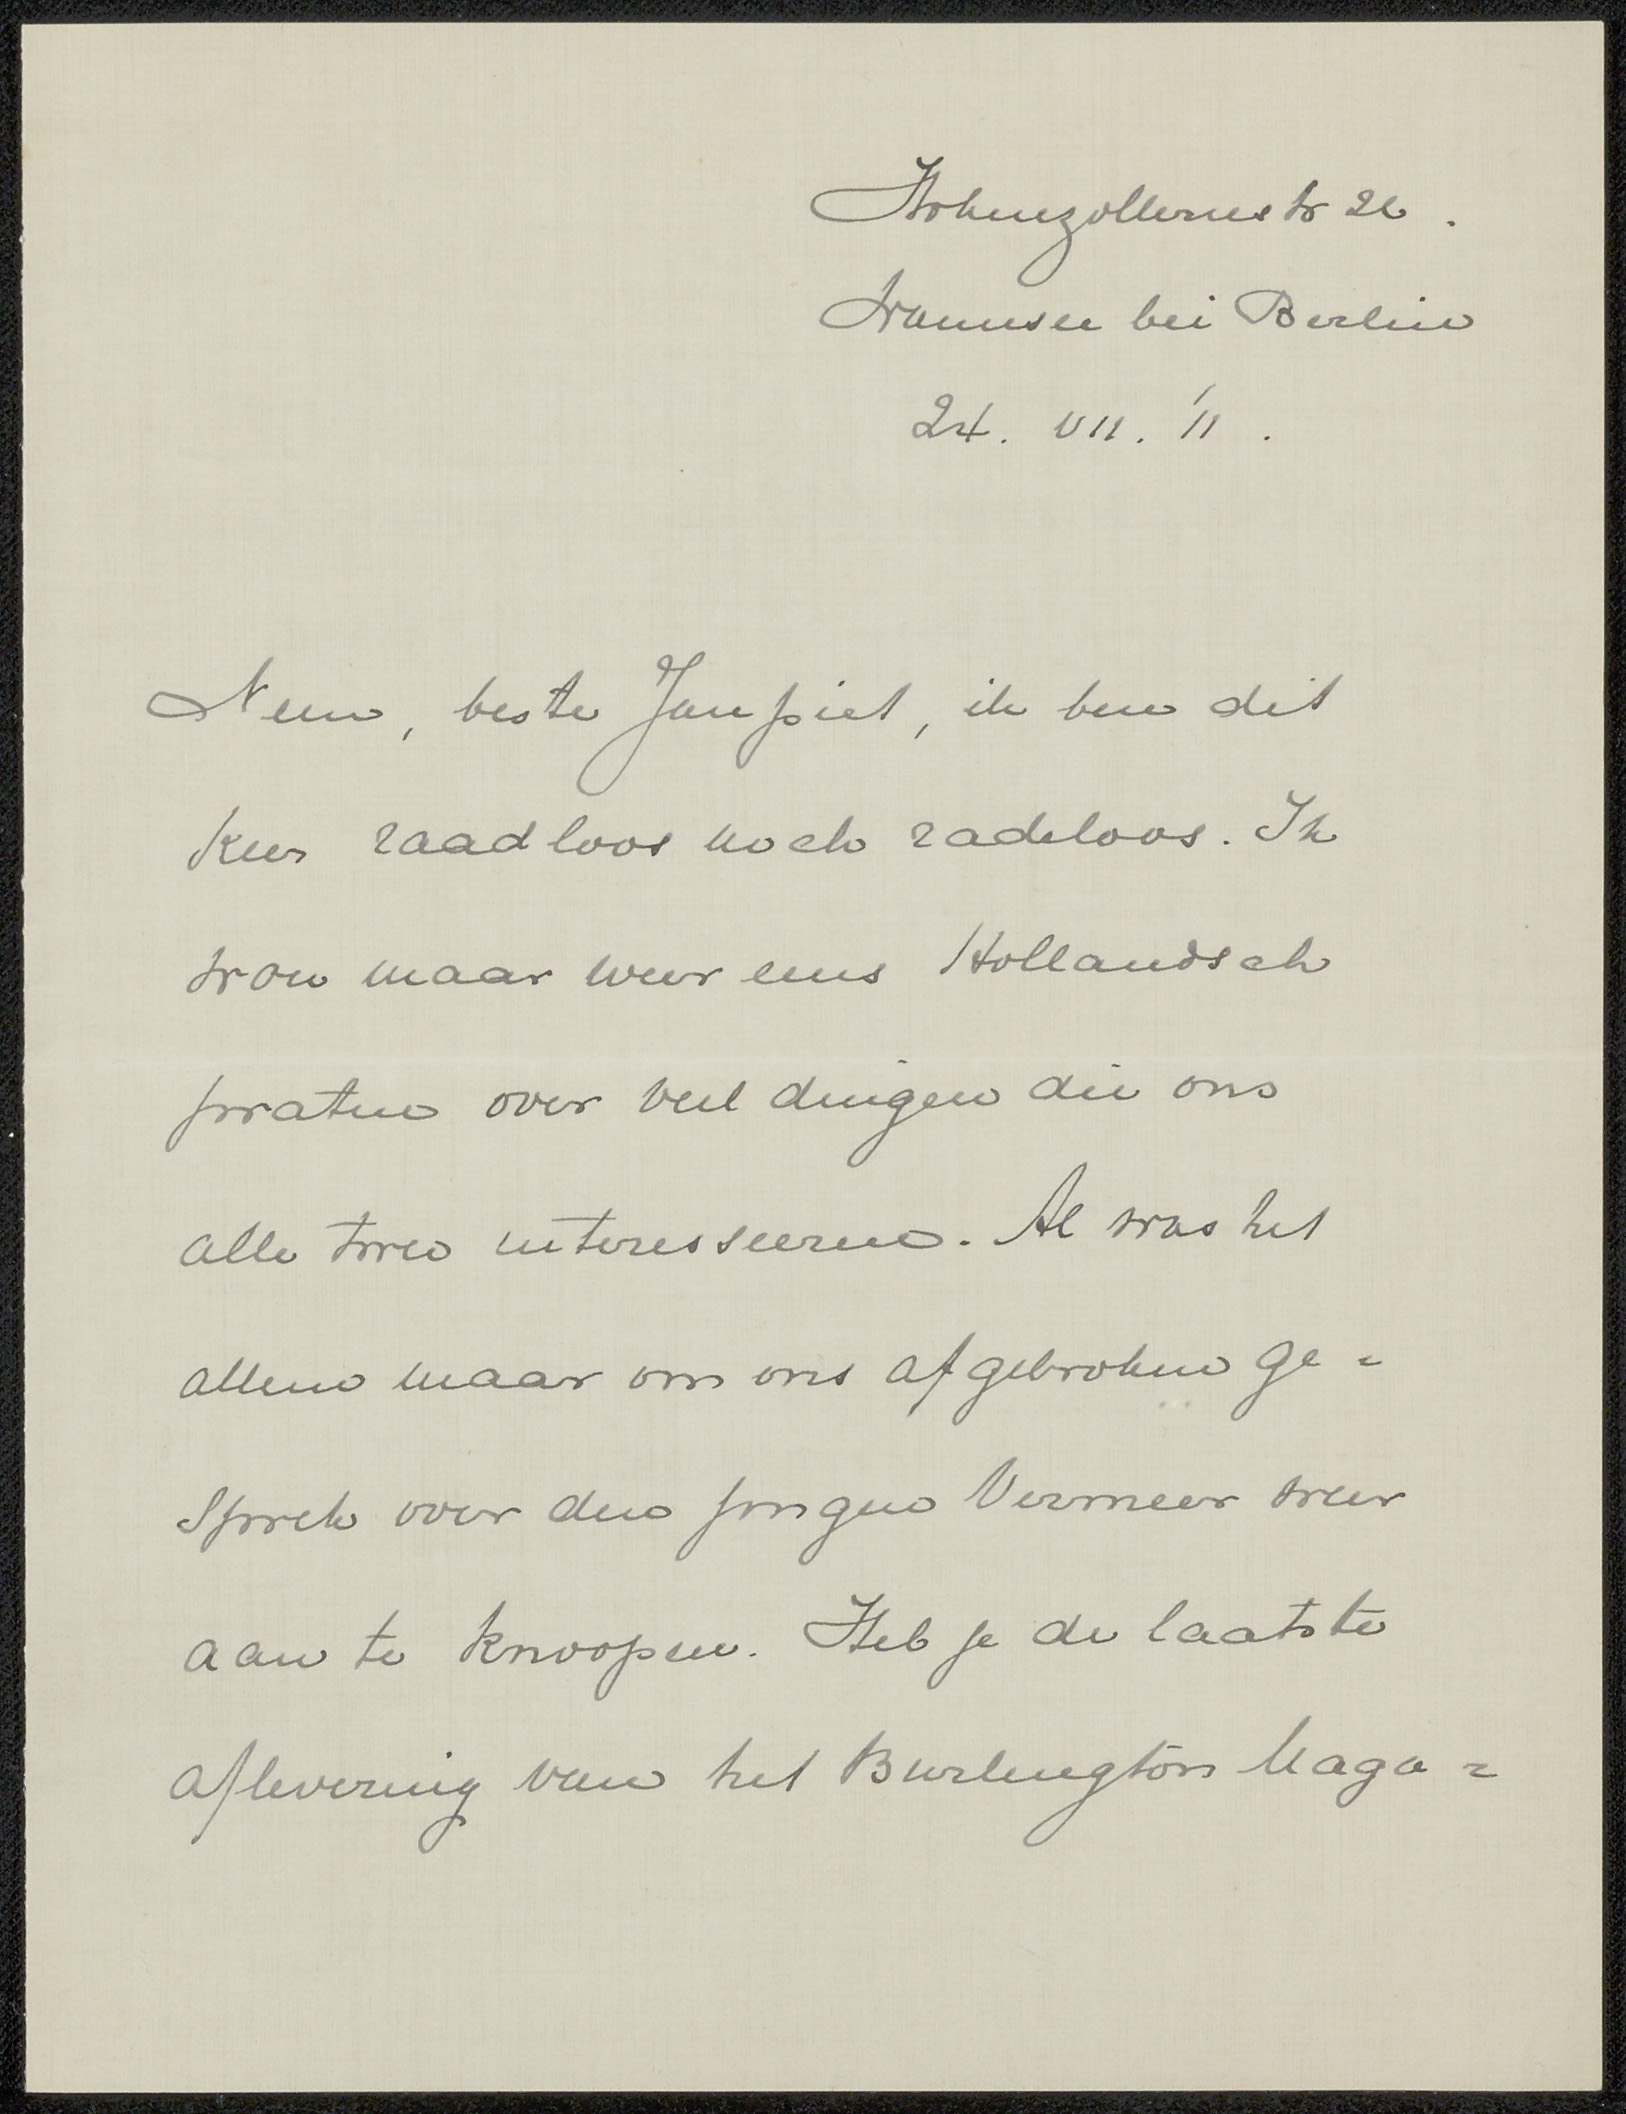 Hohenzollernstr 21.
Wannsee bei Berlin
24. VII. '11.
Neen, beste Jan piet, ik ben dit
keer raadloos noch radeloos. Ik
wou maar weer eens Hollandsch
praten over veel dingen die ons
alle twee interesseeren. Al was het
alleen maar om ons afgebroken ge=
sprek over den jongen Vermeer weer
aan te knoopen. Heb je de laatste
aflevering van het Burlington Maga=